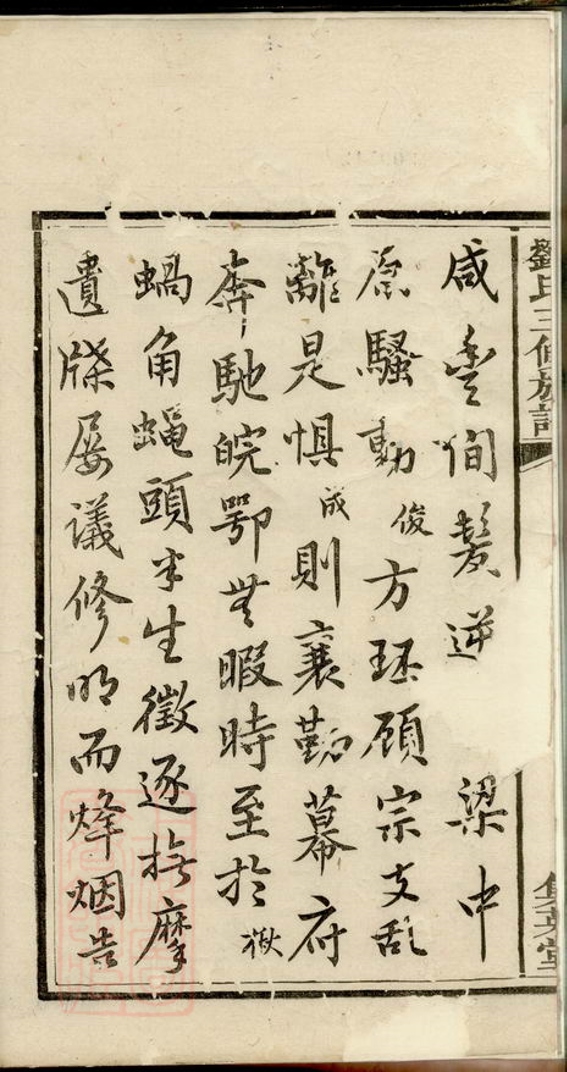 劉氏三修族譜
集英堂
咸豐間髮逆 梁中
原騷動俊方珏顧宗支亂
離是懼成則襄勤幕府
奔馳皖鄂無暇時至於猷
蝸角蠅頭半生徵逐撫摩
遺牒屢議修明而烽烟告